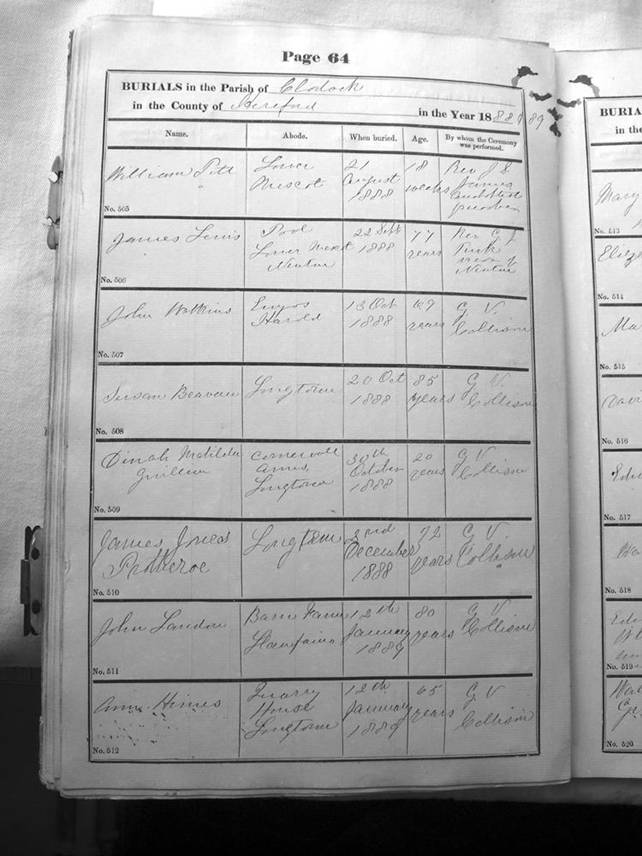 Page 64
BURIALS in the Parish of Clodock
in the County of Hereford in the Year 1888 & 89
Name. Abode. When buried. Age. By whom the Ceremony was performed.
William Pitt
Lower
21
August
1888
18
weeks
Rev J
James
No. 505
James Lewis
Pool
22 Sept
1888
77
years
Rev G
of
No. 506
John Watkins
Harold
13 Oct
1888
69
years
G. V.
Collison
No. 507
Susan Beavan
Longtown
20 Oct
1888
85
years
G V
Collison
No. 508
Dinah Matilda
Gwillim
Cornewall
Arms,
Longtown
30th
October
1888
20
years
G V
Collison
No. 509
James Jones
Longtown
2nd
December
1888
72
years
G V
Collison
No. 510
John Landon
Barn Farm
12th
January
1889
80
years
G V
Collison
No. 511
Ann Himes
Quarry
House
Longtown
12th
January
1889
65
years
G V
Collison
No. 512
BURIA
in
Mary
No. 513
No. 514
Ma
No. 515
No. 516
No. 517
No. 518
No. 519
No. 520